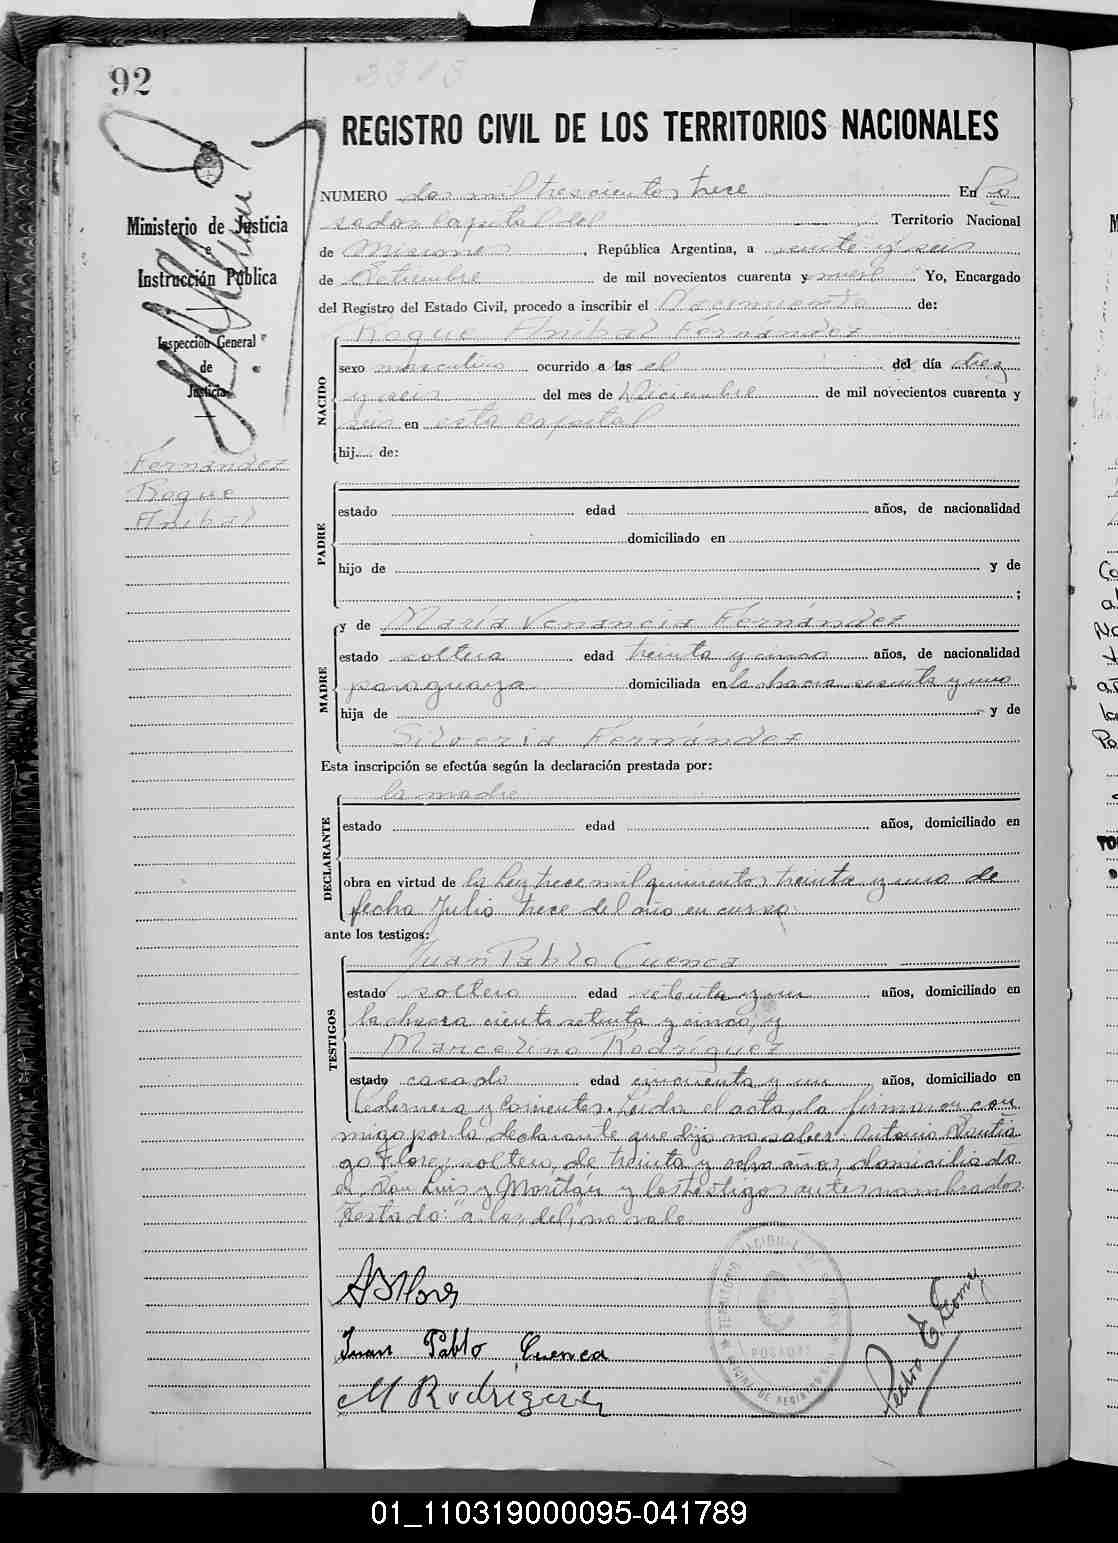 92
3313
REGISTRO CIVIL DE LOS TERRITORIOS NACIONALES
Ministerio de Justicia
e
Instrucción Pública
Inspección General
de
Justicia
Fernández
Roque
Anibal
NUMERO dos mil trescientos trece En Po
sadas capital del Territorio Nacional
de Misiones, República Argentina, a veinte y seis
de Setiembre de mil novecientos cuarenta y nueve. Yo, Encargado
del Registro del Estado Civil, procedo a inscribir el Nacimiento de:
Roque Anibal Fernández
NACIDO
sexo masculino ocurrido a las el del día diez
y seis del mes de Diciembre de mil novecientos cuarenta y
seis en esta capital
hij..... de:
PADRE
estado edad años, de nacionalidad
domiciliado en
hijo de y de
;
MADRE
y de María Venancia Fernández
estado soltera edad treinta y cinco años, de nacionalidad
paraguaya domiciliada en la chacra sesenta y uno
hija de y de
Silveria Fernández
Esta inscripción se efectúa según la declaración prestada por:
DECLARANTE
la madre
estado edad años, domiciliado en
obra en virtud de la Ley trece mil quinientos treinta y uno de
fecha Julio trece del año en curso.
ante los testigos:
TESTIGOS
Juan Pablo Cuenca
estado soltero edad setenta y un años, domiciliado en
la chacra ciento setenta y cinco, y
Marcelino Rodríguez
estado casado edad cincuenta y un años, domiciliado en
Cedernera y Corrientes. Leida el acta, la firmaron con
migo por la declarante que dijo no saber: Antonio Santia
go Flores, soltero, de treinta y ocho años, domiciliado
en San Luis y y los testigos antes nombrados.
Testado: "a las, del," no vale.
ABFlores
Juan Pablo Cuenca
M Rodríguez
Pedro E. Gomez
TERRITORIO NACIONAL DE MISIONES
POSADAS
01_110319000095-041789